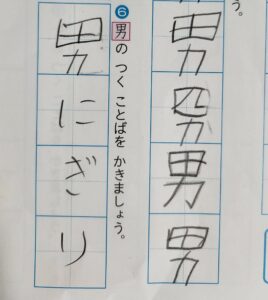 う。
男
男
男
男
❻男の つく ことばを かきましょう。
男にぎり